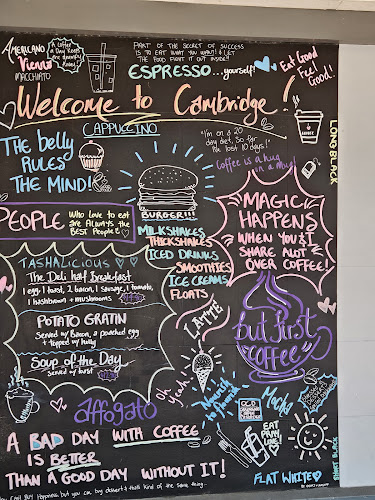 AMERICANO
Vienna
MACCHIATO
A Coffee
a Day Keeps
the grumpy
away!
PART OF THE SECRET OF SUCCESS
IS TO EAT WHAT YOU WANT! & LET
THE FOOD FIGHT IT OUT INSIDE!!
ESPRESSO ...yourself!
Eat Good
Feel
Good!
Welcome to Cambridge!
CAPPUCCINO
The belly
RULES
THE MIND!
"I'm on a 20
day diet, so far
I've lost 10 days!"
Coffee is a hug
in a mug
LONG BLACK
BURGER!!!
PEOPLE
Who love to eat
are Always the
BEST People!
MILKSHAKES
THICKSHAKES
ICED DRINKS
SMOOTHIES
ICE CREAMS
FLOATS
MAGIC
HAPPENS
WHEN YOU
SHARE
OVER COFFEE!
TASHALICIOUS
The Deli half Breakfast
1 egg, 1 toast, 2 bacon, 1 sausage, 1 tomato,
1 hashbrown + mushrooms
POTATO GRATIN
Served w/ Bacon, a poached egg
+ topped w/ holly
Soup of the Day
Served w/ toast
LATTE!
but first
coffee
Oh
Yeah!
affogato
Mocha
EAT
A BAD DAY WITH COFFEE
IS BETTER
THAN A GOOD DAY WITHOUT IT!
FLAT WHITE
SHORT BLACK
You can't Buy Happiness but you can buy dessert & that's kind of the same thing.